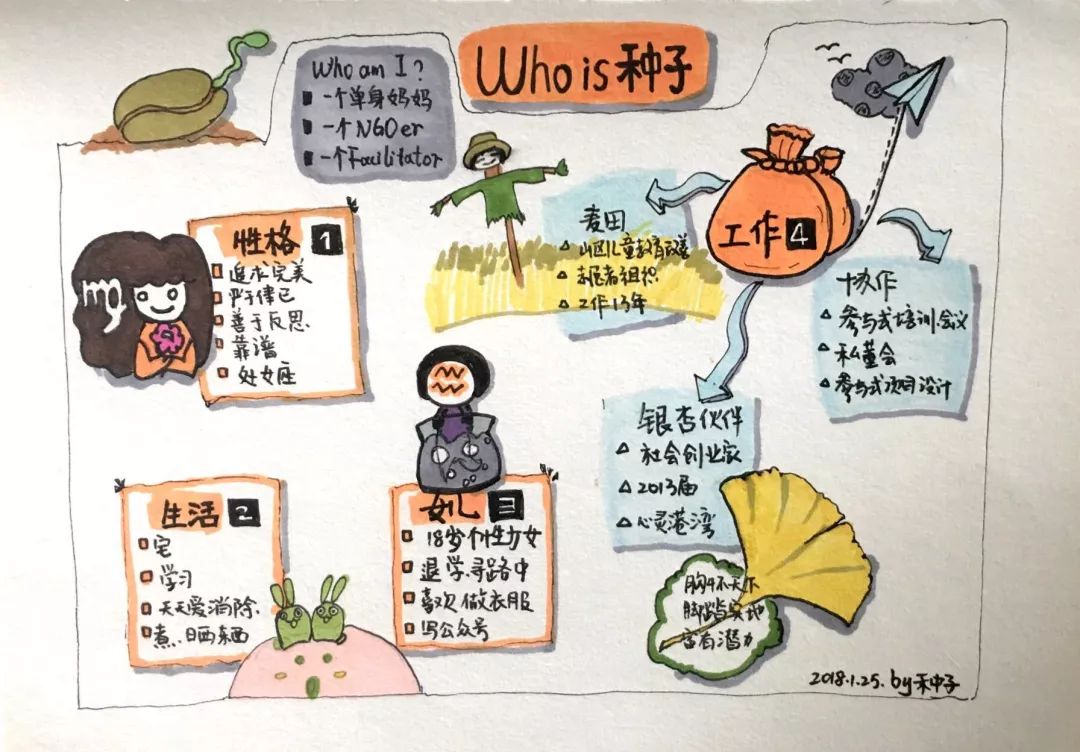 Who is 种子
Who am I?
一个单身妈妈
一个NGOer
一个Facilitator
性格 1
追求完美
严于律己
善于反思
靠谱
处女座
生活 2
宅
学习
天天爱消除
煮、晒东西
女儿 3
18岁个性少女
退学寻路中
喜欢做衣服
写公众号
工作 4
麦田
山区儿童教育改善
志愿者组织
工作13年
协作
参与式培训会议
私董会
参与式项目设计
银杏伙伴
社会创业家
2013届
心灵港湾
胸怀天下
脚踏实地
富有潜力
2018.1.25. by 禾种子